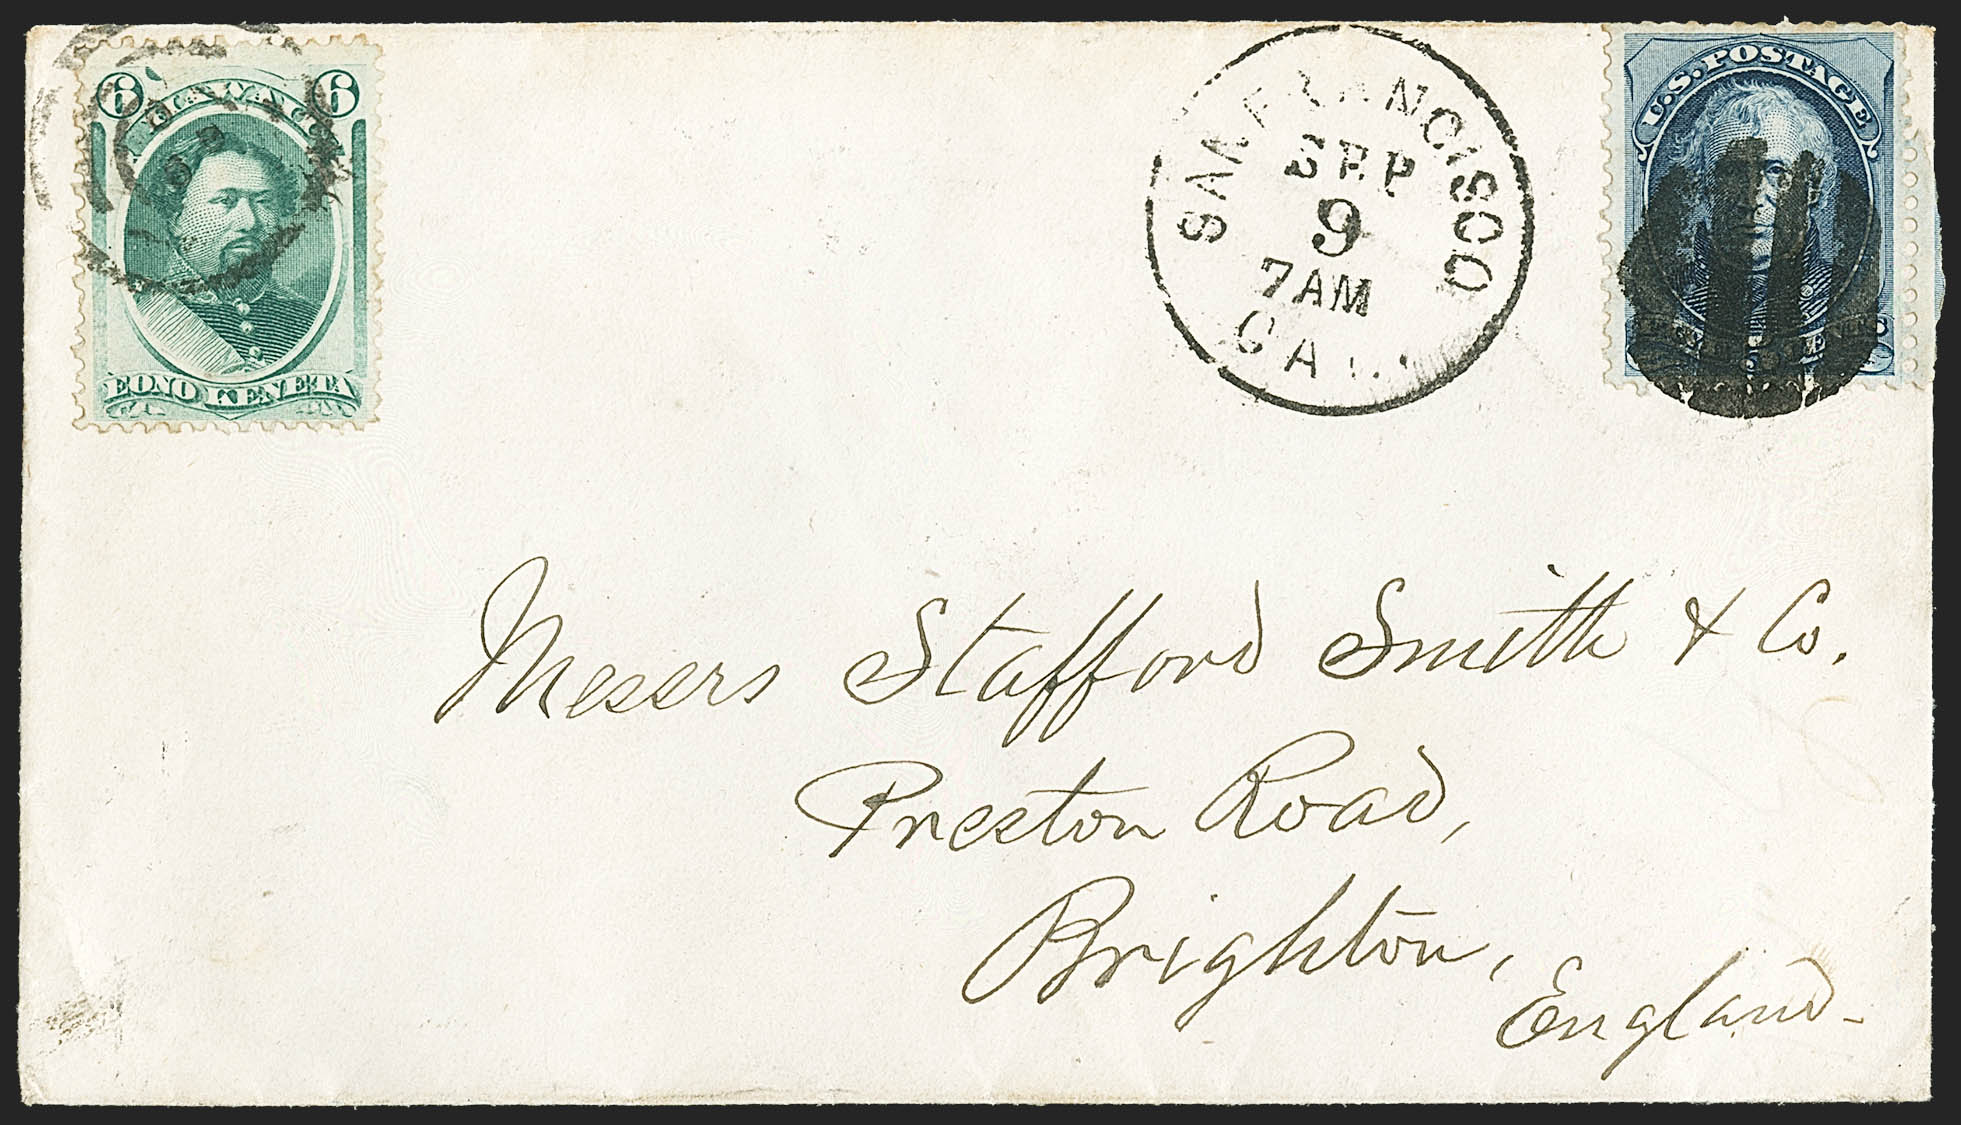 6 HAWAII 6
EONO KENETA
SAN FRANCISCO
SEP
9
7AM
CAL.
U.S. POSTAGE
Messrs Stafford Smith & Co.
Preston Road,
Brighton,
England.